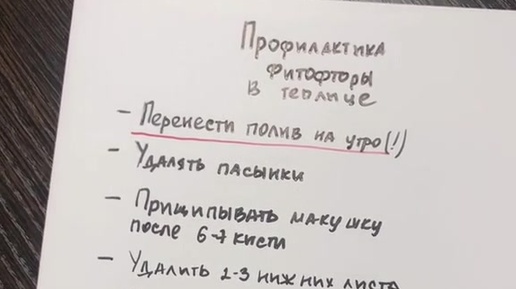 Профилактика
фитофторы
в теплице
- Перенести полив на утро(!)
- Удалять пасынки
- Прищипывать макушку
после 6-7 кисти
- Удалить 2-3 нижних листа